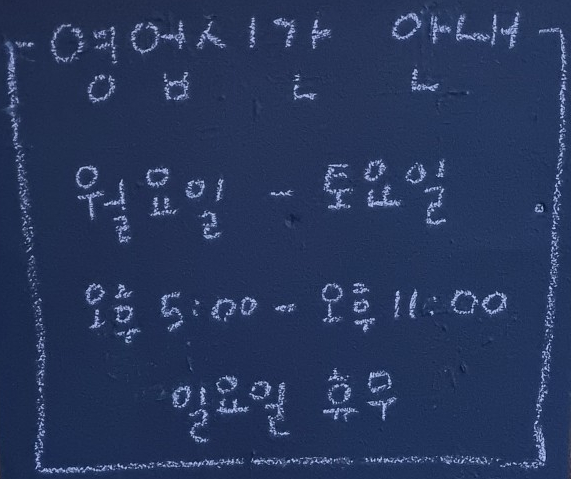 영업시간 안내
월요일 - 토요일
오후 5:00 - 오후 11:00
일요일 휴무